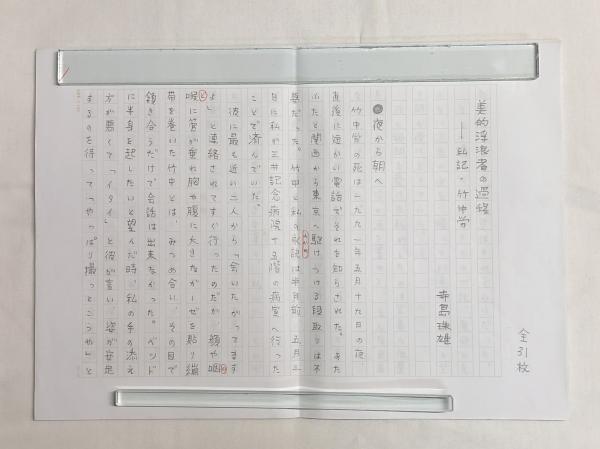 全31枚
美的浮浪者の過程
――私記・竹中労
寺島珠雄
● 夜から朝へ
竹中労の死は一九九一年五月十九日の夜
直後に短かい電話でそれを知らされた。あた
ふたと関西から東京へ駆けつける段取りは不
要だった。竹中と私の永訣は半月前、五月三
日に私が三井記念病院十五階の病室へ行った
ことで済んでいた。
彼に最も近い二人から「会いたがってます
よ」と連絡されてすぐ行ったのだが、顔や咽
喉に管が垂れ胸や腹に大きなガーゼを貼り繃
帯を巻いた竹中とは、みつめ合い、その目で
頷き合うだけで会話は出来なかった。ベッド
に半身を起したいと望んだ時、私の手の添え
方が悪くて「イタイ」と彼が言い、姿が安定
するのを待って「やっぱり撮っとこうや」と